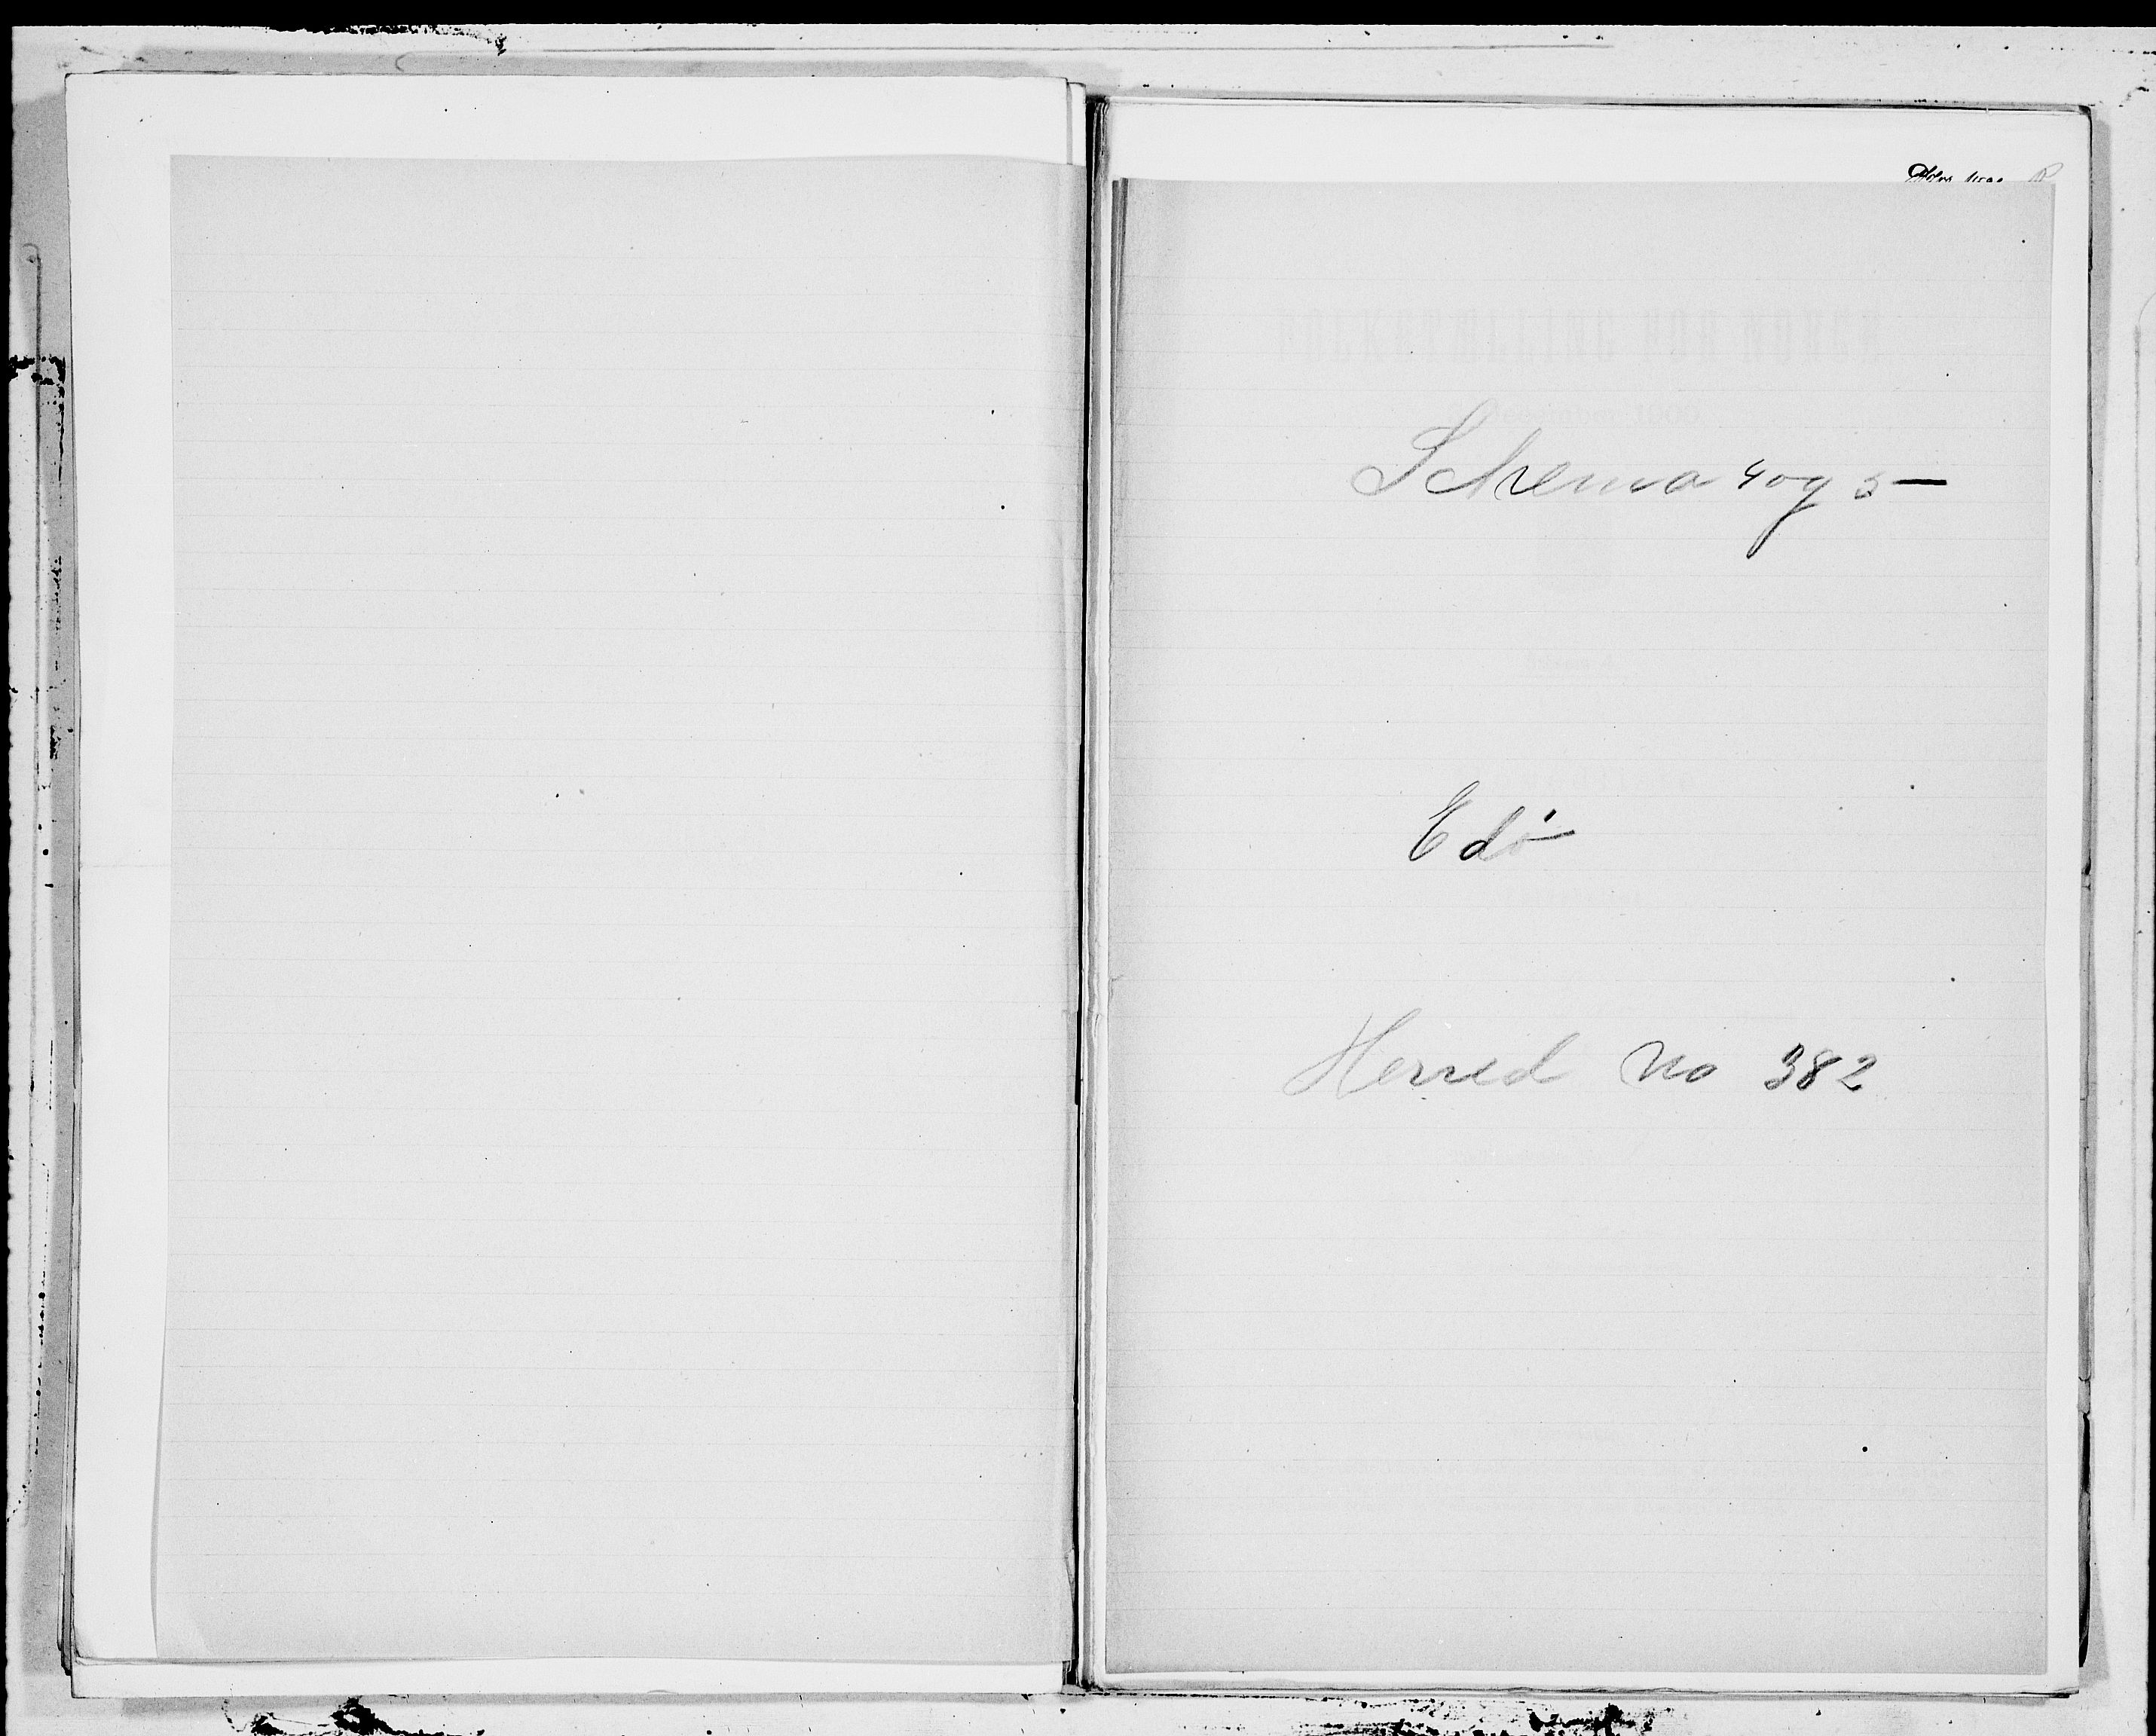 FOLKETÆLLING FOR NORGE
December 1900
Schema 4 og 5
Edö
Herred No 382